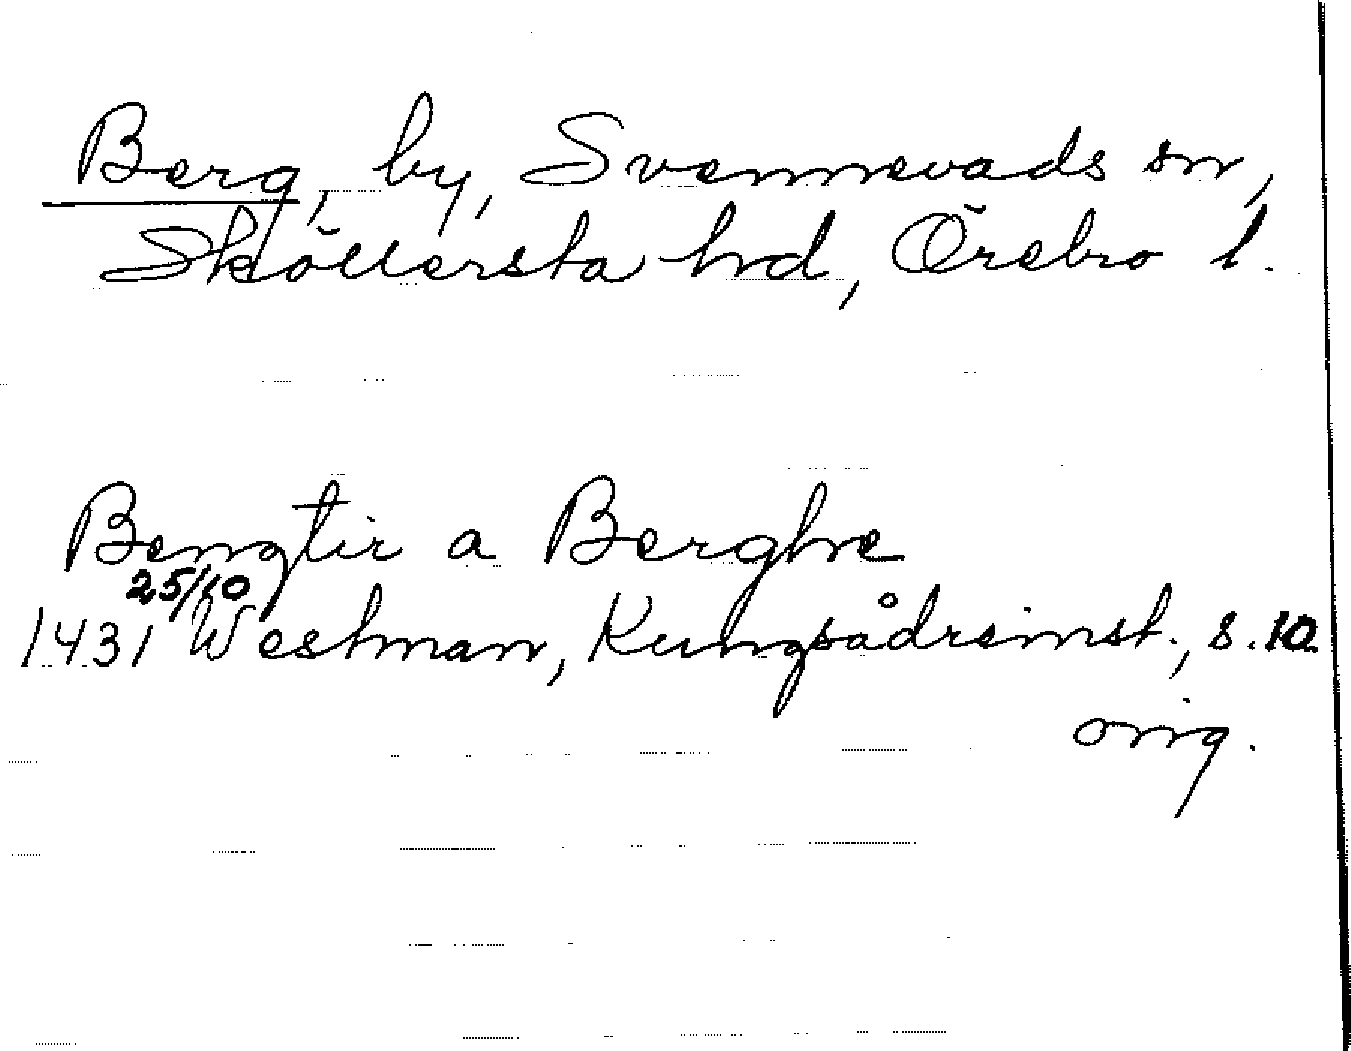 Berg, by, Svennevads sn,
Sköllersta hrd, Örebro l.
Bengtir a Berghe
25/10
1431 Westman, Kungsådreinst., s. 10.
orig.